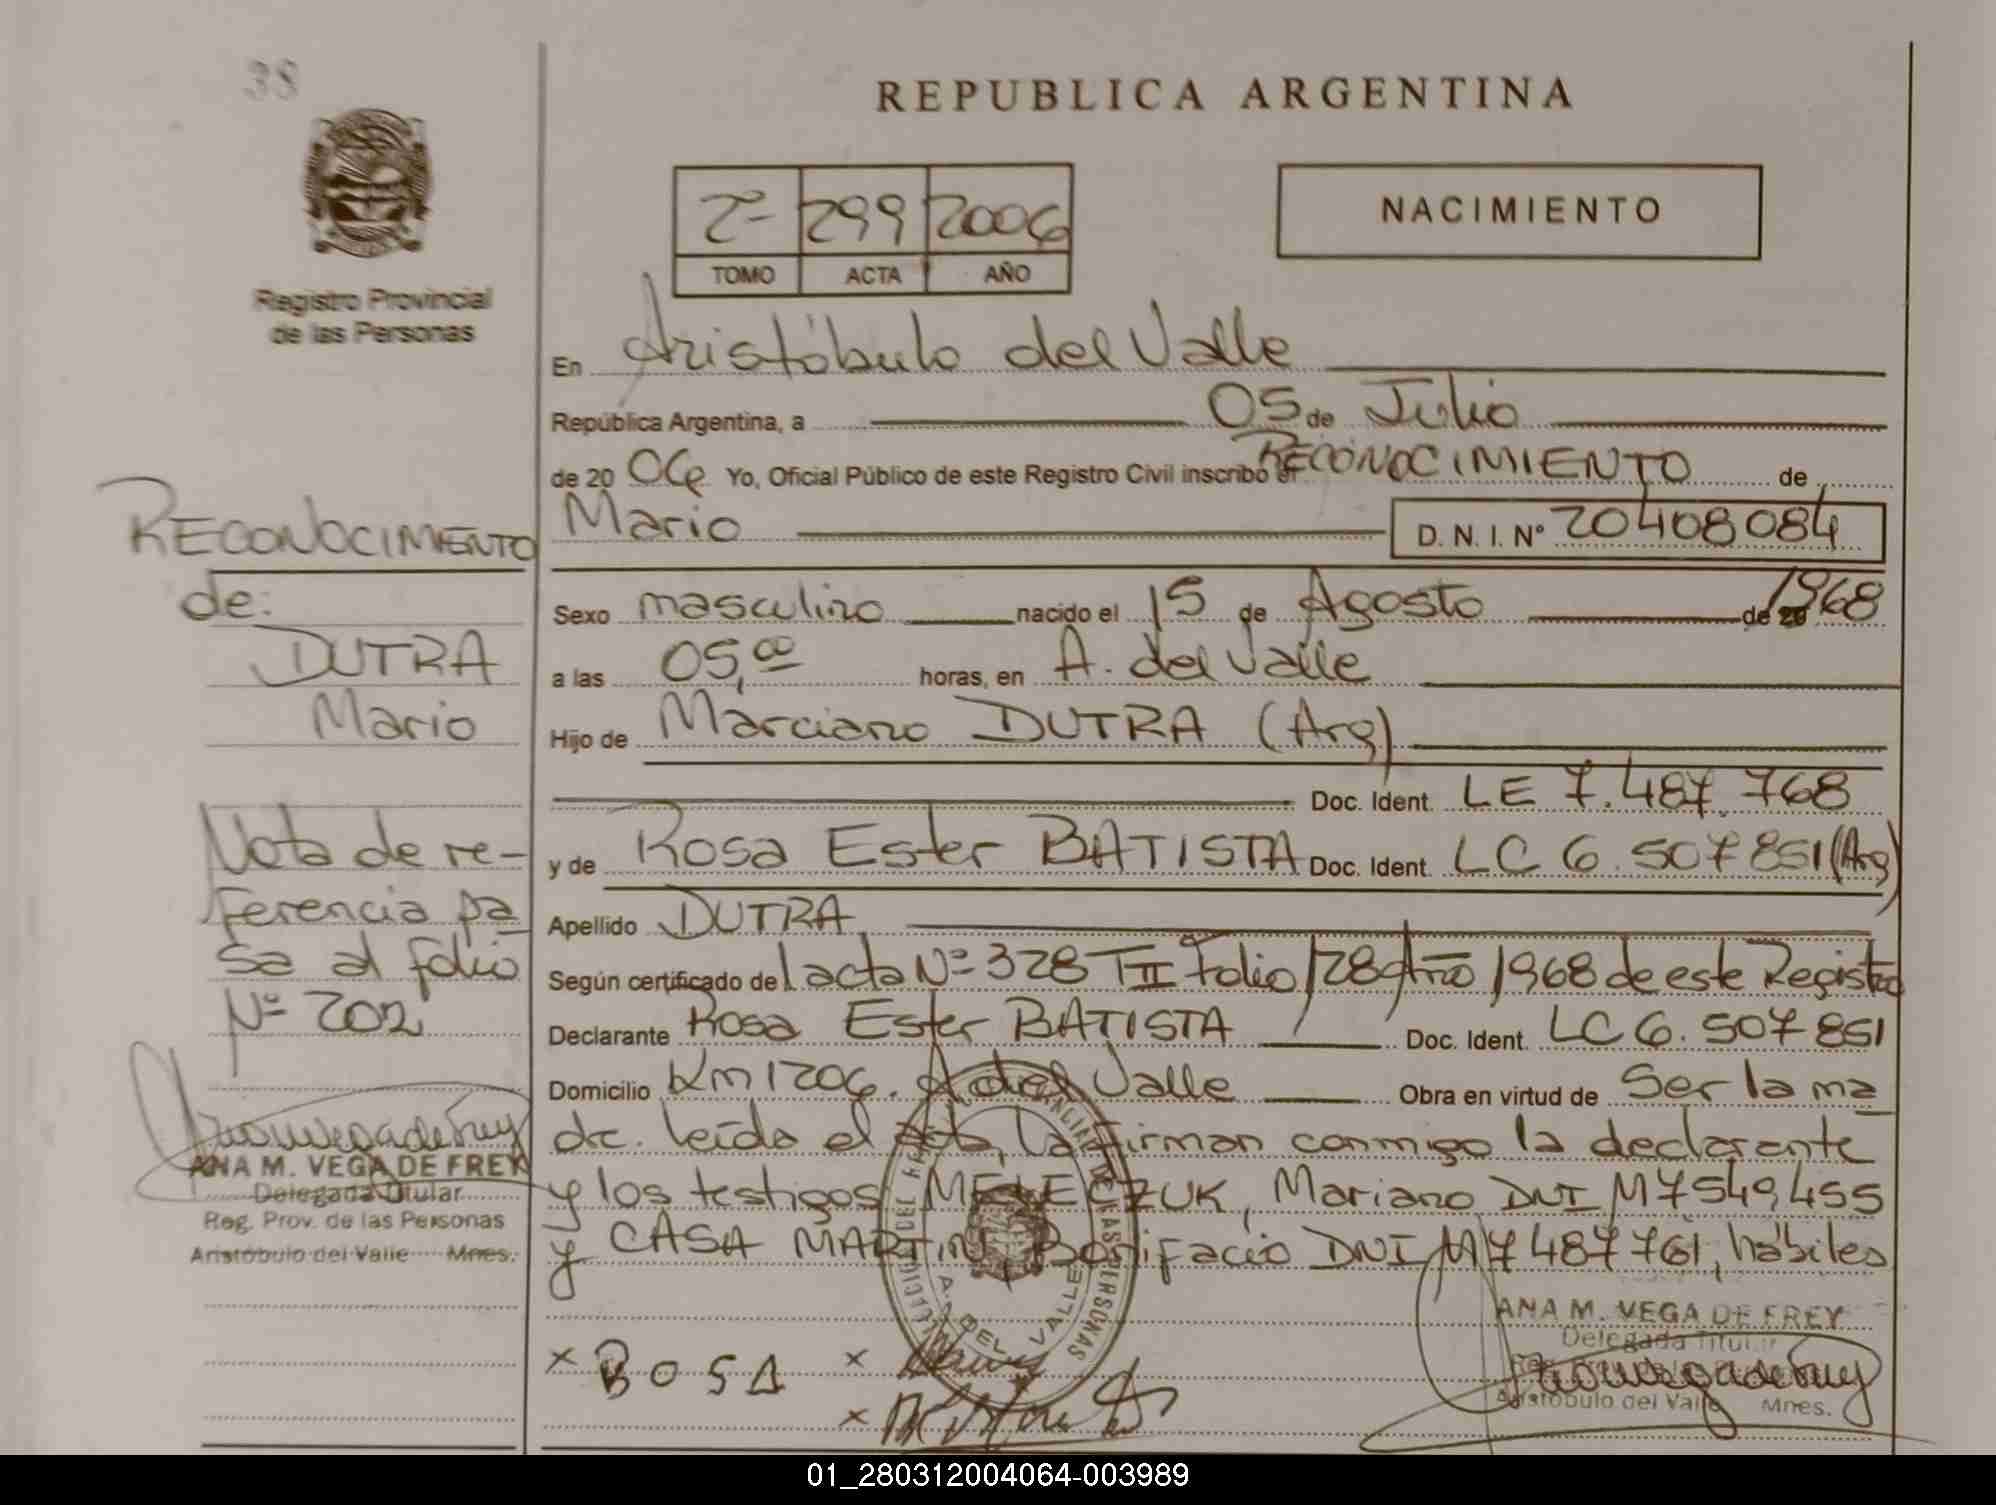 38
Registro Provincial
de las Personas
RECONOCIMIENTO
de:
DUTRA
Mario
Nota de re-
ferencia pa
sa al folio
Nº 202
ANA M. VEGA DE FREY
Delegada Titular
Reg. Prov. de las Personas
Aristóbulo del Valle Mnes.
REPUBLICA ARGENTINA
2º 299 2006
TOMO ACTA AÑO
NACIMIENTO
En Aristóbulo del Valle
República Argentina, a 05 de Julio
de 20 06 Yo, Oficial Público de este Registro Civil inscribo el RECONOCIMIENTO de
Mario D. N. I. Nº 20408084
Sexo masculino nacido el 15 de Agosto de 1968
a las 05,00 horas, en A. del Valle
Hijo de Marciano DUTRA (Arg)
Doc. Ident. LE 7.487.768
y de Rosa Ester BATISTA Doc. Ident. LC 6.507851 (Arg)
Apellido DUTRA
Según certificado de l acta Nº 328 T II Folio 128 Año 1968 de este Registro
Declarante Rosa Ester BATISTA Doc. Ident. LC 6.507851
Domicilio Km 1206. A del Valle Obra en virtud de Ser la ma
dre. leída el acta, la firman conmigo la declarante
y los testigos Mariano DNI M7549,455
y CASA MARTIN Bonifacio DNI M7487761, hábiles
A. DEL VALLE
x ROSA x
x
ANA M. VEGA DE FREY
Delegada Titular
Aristóbulo del Valle Mnes.
01_280312004064-003989